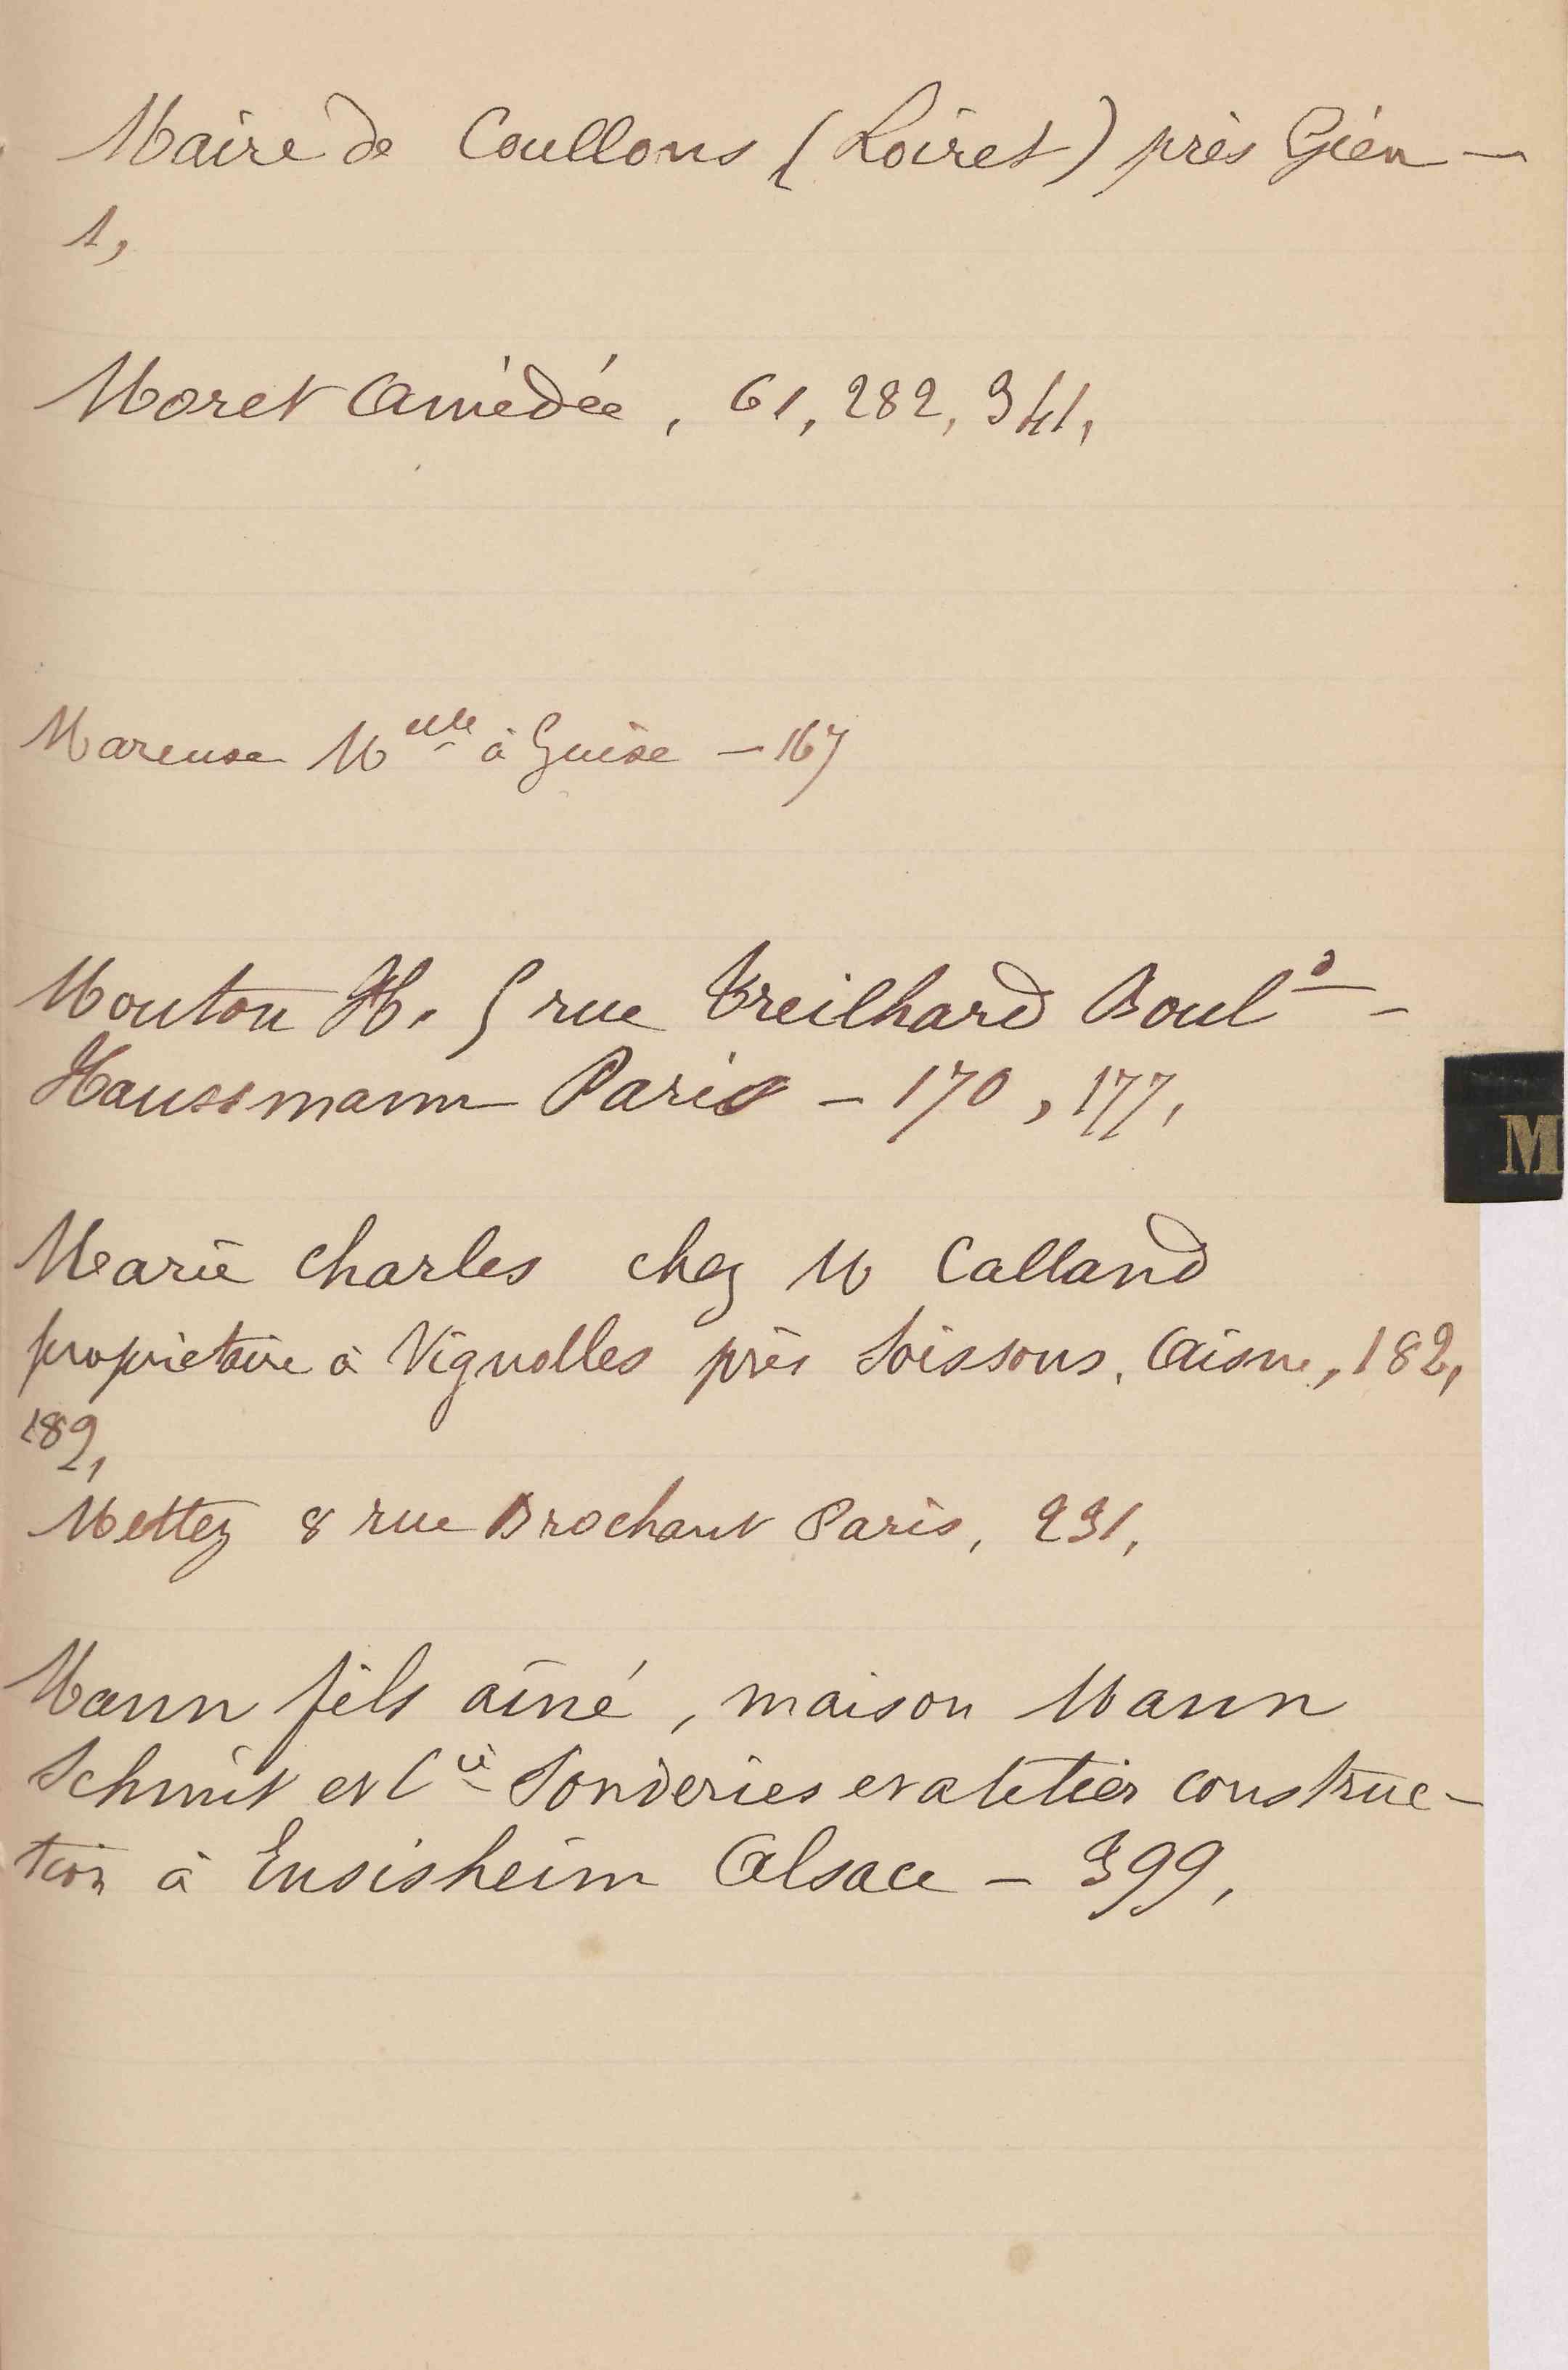 Maire de Coullons (Loiret) près Gien —
1,
Moret Amédée, 61, 282, 341,
Mareuse Melle à Guise — 167
Mouton H. 5 rue Treilhard Bould —
Haussmann Paris — 170, 177,
M
Marie Charles chez M Calland
propriétaire à Vignolles près Soissons, Aisne, 182,
189,
Mettez 8 rue Brochant Paris, 231,
Mann fils aîné, maison Mann
Schmit et Cie Fonderies et atelier construc-
tion à Ensisheim Alsace — 399,